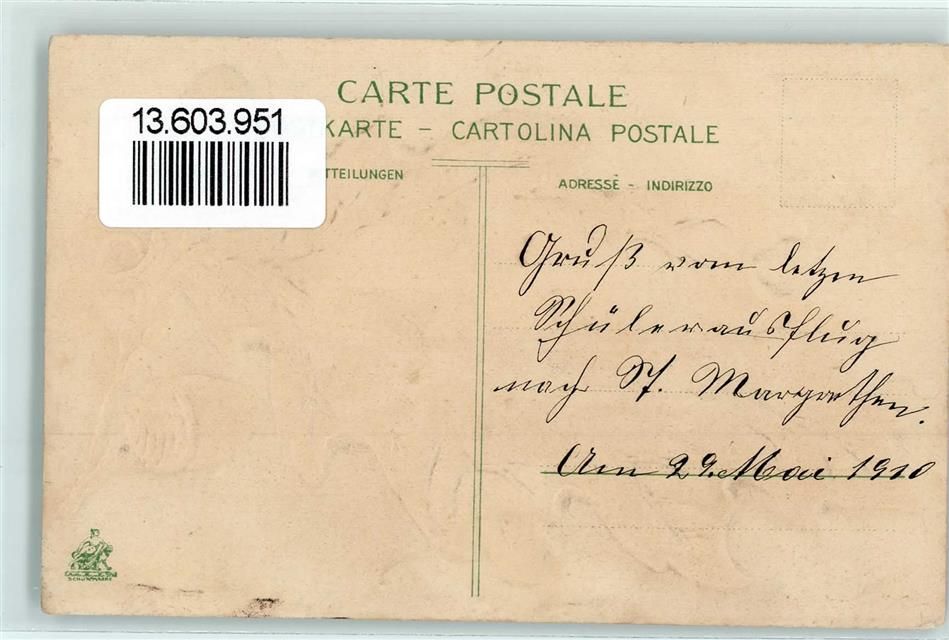 CARTE POSTALE
13.603.951
KARTE - CARTOLINA POSTALE
TTEILUNGEN
ADRESSE - INDIRIZZO
Gruß vom letzen
Schülerausflug
nach St. Margrethen.
Am 29. Mai 1910
SCHUTZMARKE